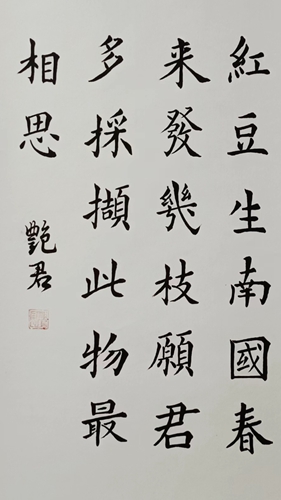 紅豆生南國春
来發幾枝願君
多採擷此物最
相思
艷君